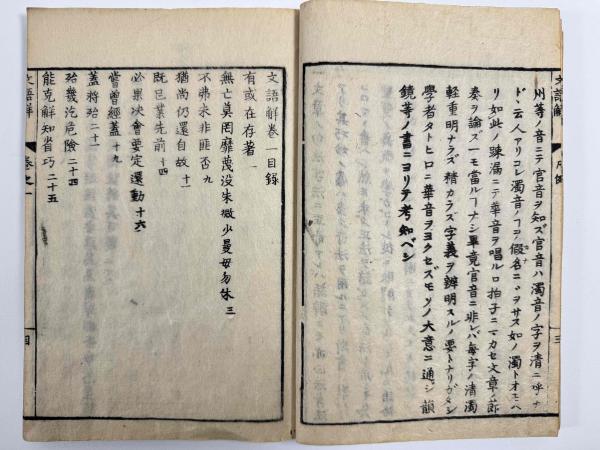 州等ノ音ニテ官音ヲ知ズ官音ハ濁音ノ字ヲ清ニ呼ナ
ド云人アリコレ濁音ノヿヲ假名ニヾヲサス如ノ濁トオモヘ
リ如此ノ踈漏ニテ華音ヲ唱ルロ拍子ニマカセ文章ノ節
奏ヲ論ズ一モ當ルヿナシ畢竟官音ニ非レバ毎字ノ清濁
輕重明ナラズ精カラズ字義ヲ辨明スルノ要トナリガタシ
學者タトヒロニ華音ヲヨクセズモソノ大意ニ通ジ韻
鏡等ノ書ニヨリテ考知ベシ
三
文語解卷一目録
有或在存著一
無亡莫罔靡蔑没末微少曼毋勿休三
不弗未非匪否九
猶尚仍還自故十一
既已業先前十四
必果决會要定還動十六
嘗曾經蓋十九
蓋將殆二十一
殆幾汔危險二十四
能克鮮知省巧二十五
文語解
卷之一
四